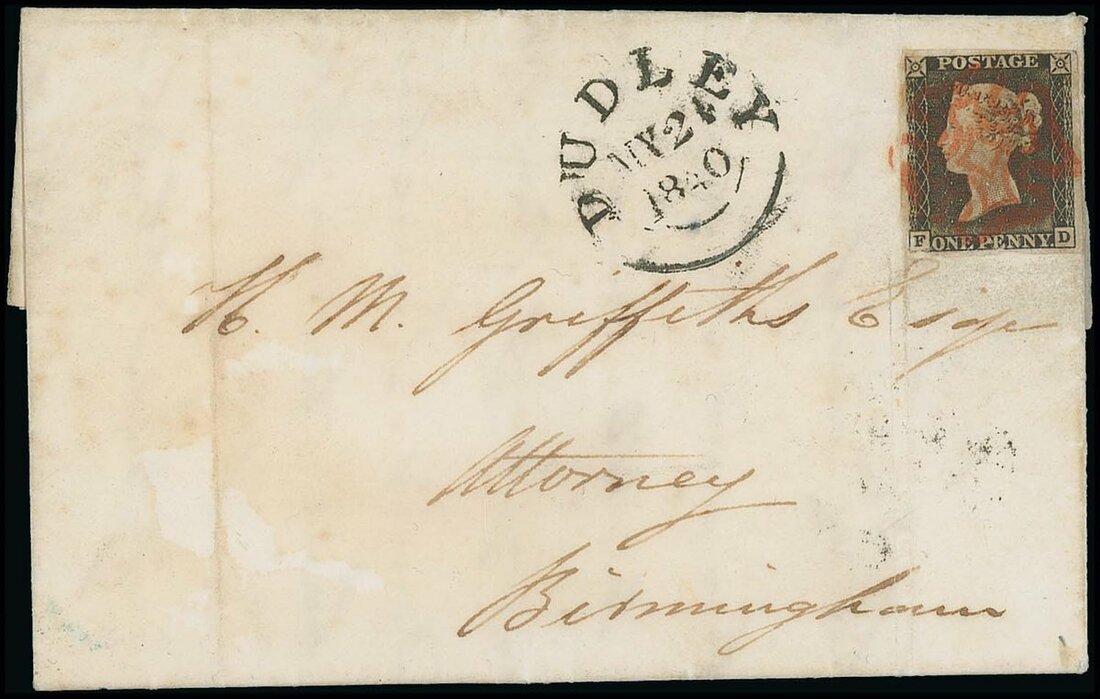 DUDLEY
MY 2
1840
POSTAGE
F ONE PENNY D
H. M. Griffiths Esqe
Attorney
Birmingham